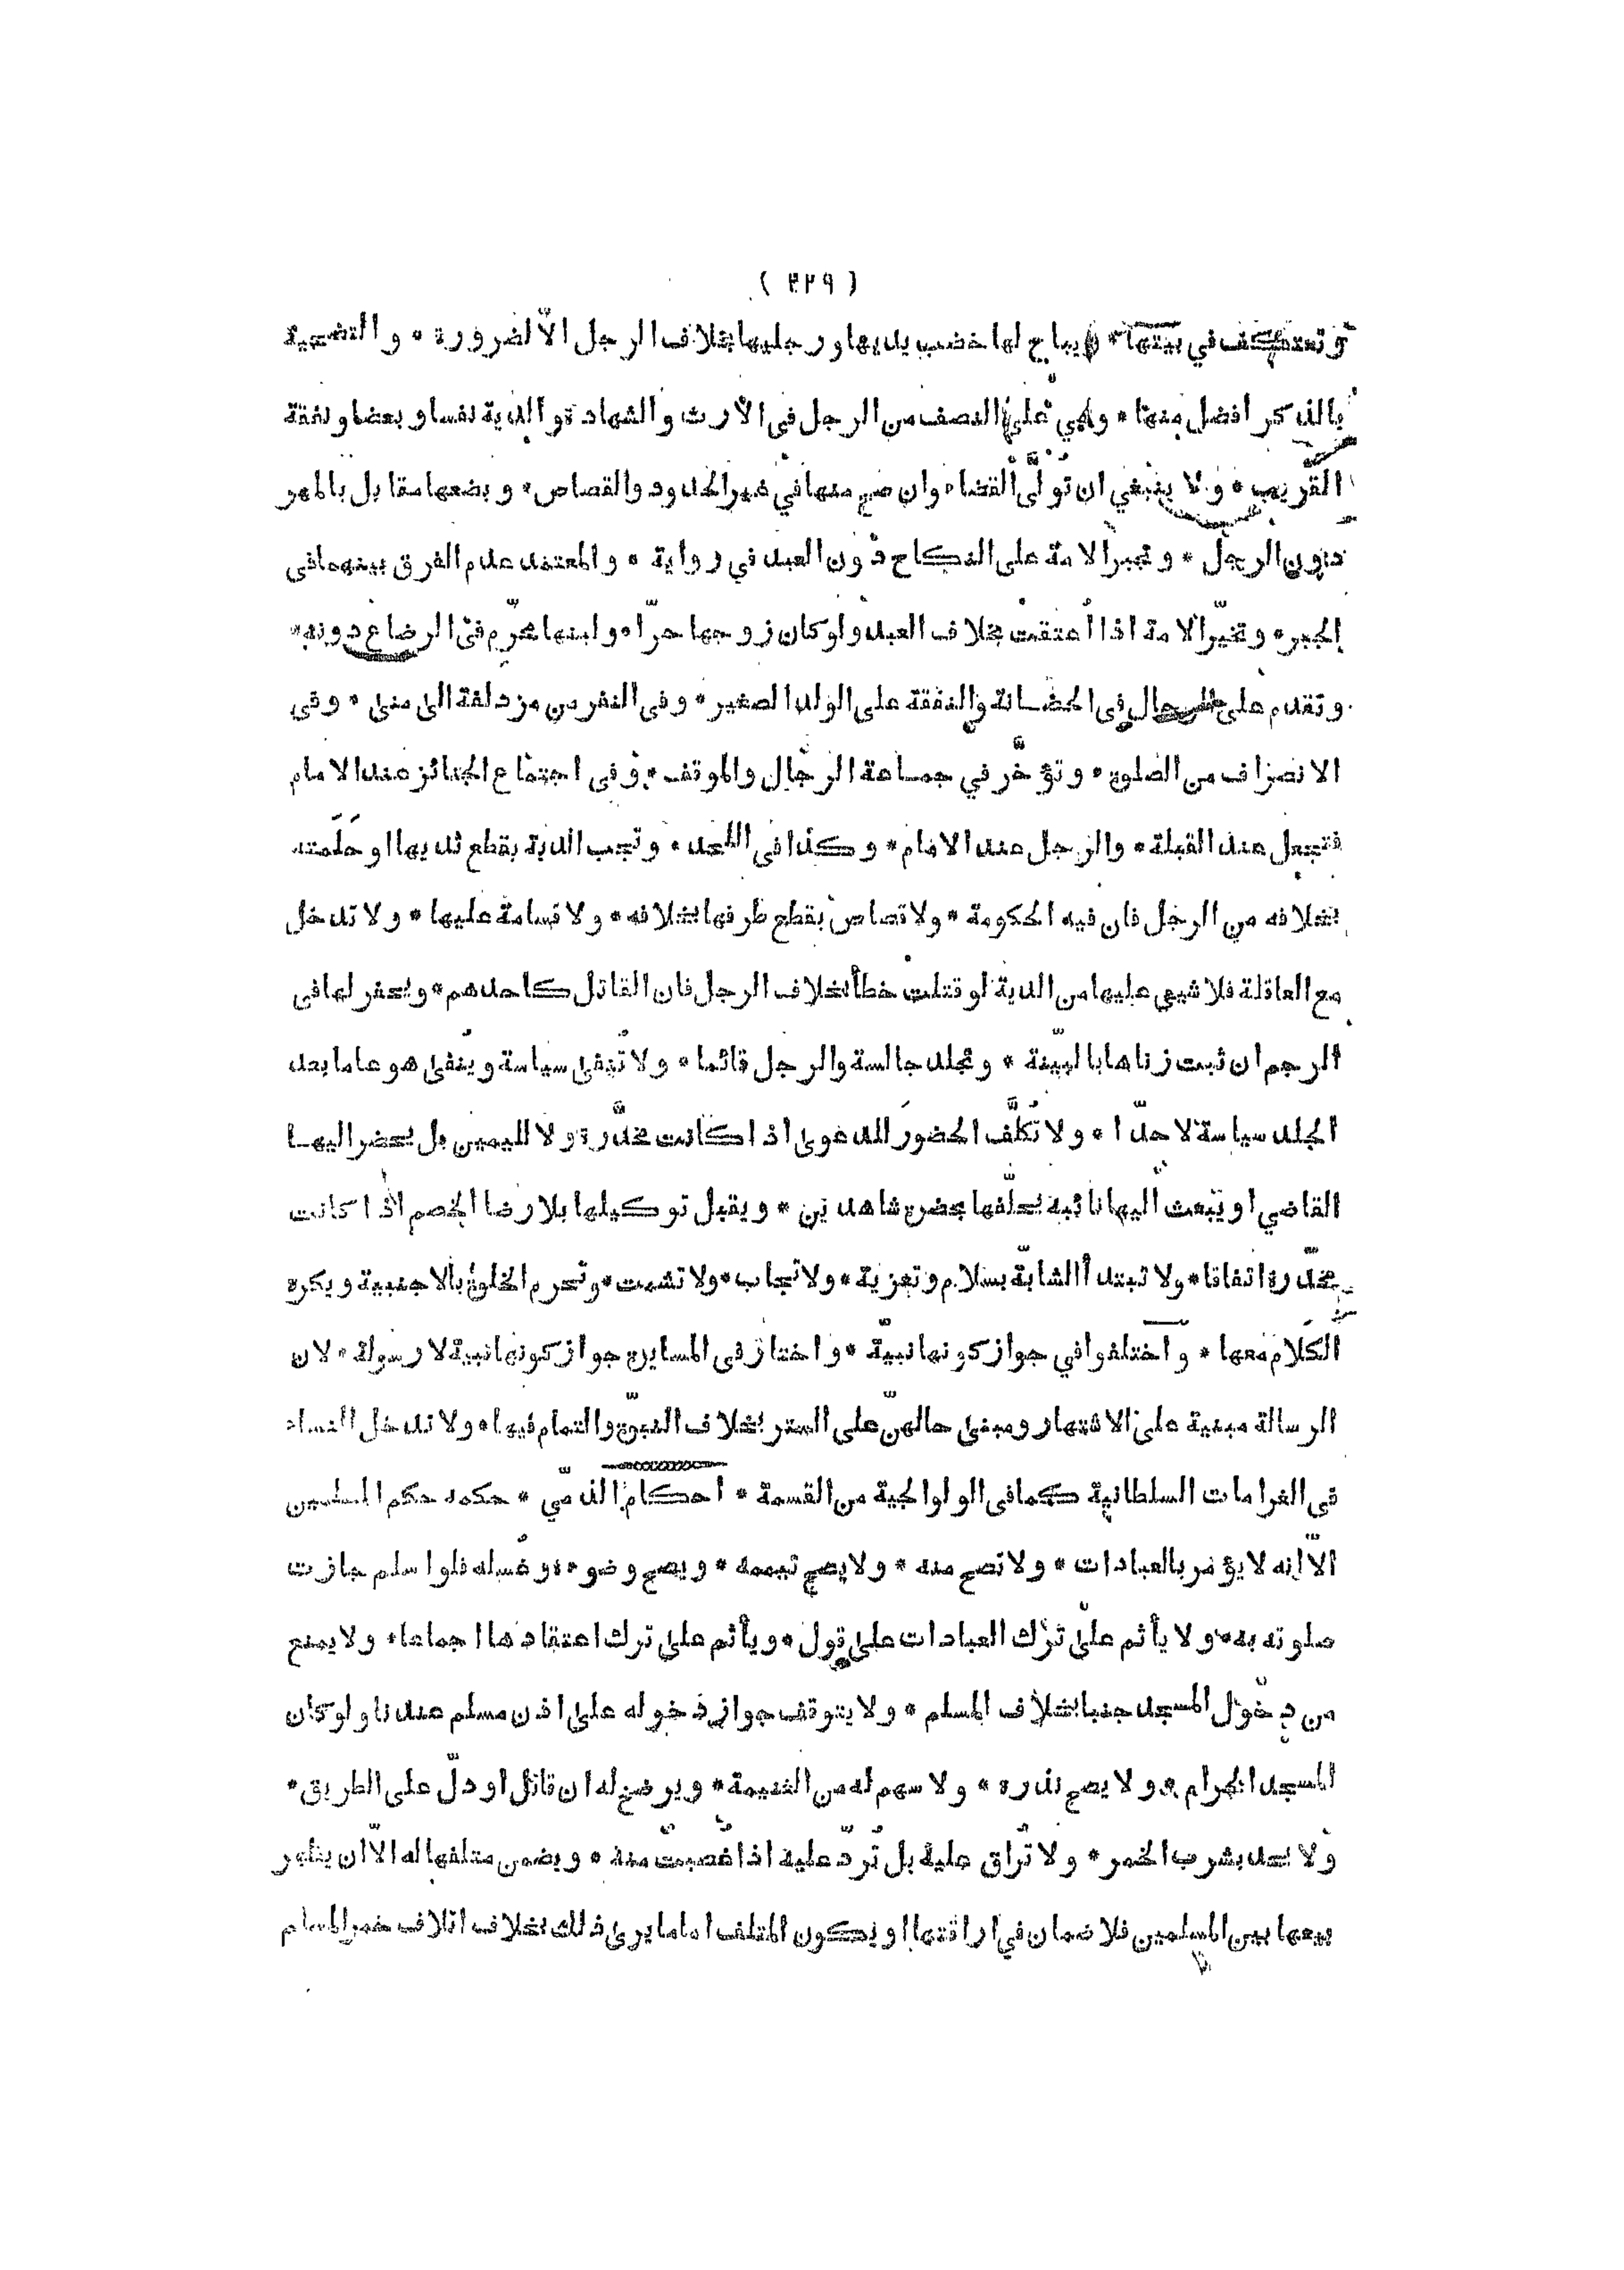 ( ٤٢٩ )
وتعتكف في بيتها * ويباح لها خضب يديها ورجليها بخلاف الرجل الّا لضرورة * والتضحية
بالذكر افضل منها * وهي على النصف من الرجل في الارث والشهادة والدية نفسا وبعضا ونفقة
القريب * ولا ينبغي ان تُولَّى القضاء وان صح منها في غير الحدود والقصاص * وبضعها مقابل بالمهر
دون الرجل * وتجبر الامة على النكاح دون العبد في رواية * والمعتمد عدم الفرق بينهما في
الجبر * وتخيّر الامة اذا اُعتقت بخلاف العبد ولو كان زوجها حرّا * ولبنها محرّم في الرضاع دونه *
وتقدم على الرجال في الحضانة والنفقة على الولد الصغير * وفي النفر من مزدلفة الى منى * وفي
الانصراف من الصلوة * وتؤخَّر في جماعة الرجال والموقف * وفي اجتماع الجنائز عند الامام
فتجعل عند القبلة * والرجل عند الامام * وكذا في اللحد * وتجب الدية بقطع ثديها او حَلَمته
بخلافه من الرجل فان فيه الحكومة * ولا قصاص بقطع طرفها بخلافه * ولا قسامة عليها * ولا تدخل
مع العاقلة فلا شيء عليها من الدية لو قتلت خطأ بخلاف الرجل فان القاتل كاحدهم * ويحفر لها في
الرجم ان ثبت زناها بالبيّنة * وتجلد جالسة والرجل قائما * ولا تُنفى سياسة ويُنفى هو عاما بعد
الجلد سياسة لا حدّا * ولا تُكلَّف الحضور للدعوى اذا كانت مخدَّرة ولا لليمين بل يحضر اليها
القاضي او يبعث اليها نائبه يحلّفها بحضرة شاهدين * ويقبل توكيلها بلا رضا الخصم اذا كانت
مخدّرة اتفاقا * ولا تبتدأ الشابّة بسلام وتعزية * ولا تجاب * ولا تشمت * وتحرم الخلوة بالاجنبية ويكره
الكلام معها * واختلفوا في جواز كونها نبيّة * واختار في المسايرة جواز كونها نبية لا رسولة * لان
الرسالة مبنية على الاشتهار ومبنى حالهنّ على الستر بخلاف النبوّة والتمام فيها * ولا تدخل النساء
في الغرامات السلطانية كما في الولوالجية من القسمة * احكام الذمّي * حكمه حكم المسلمين
الّا انه لا يؤمر بالعبادات * ولا تصح منه * ولا يصح تيممه * ويصح وضوءه وغسله فلو اسلم جازت
صلوته به * ولا يأثم على ترك العبادات على قول * ويأثم على ترك اعتقادها اجماعا * ولا يمنع
من دخول المسجد جنبا بخلاف المسلم * ولا يتوقف جواز دخوله على اذن مسلم عندنا ولو كان
المسجد الحرام * ولا يصح نذره * ولا سهم له من الغنيمة * ويرضخ له ان قاتل او دلّ على الطريق *
ولا يحد بشرب الخمر * ولا تُراق عليه بل تُردّ عليه اذا غُصبت منه * ويضمن متلفها له الّا ان يظهر
بيعها بين المسلمين فلا ضمان في اراقتها او يكون المتلف اماما يرى ذلك بخلاف اتلاف خمر المسلم